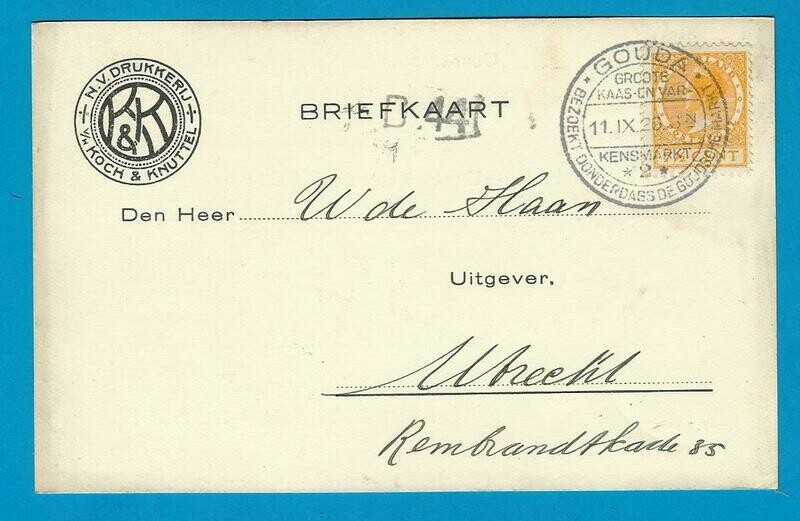 N.V. DRUKKERIJ
K&K
V/H KOCH & KNUTTEL
BRIEFKAART
D. 44
GOUDA
GROOTE
KAAS-EN VAR-
11.IX.26.
KENSMARKT
* 2 *
BEZOEKT DONDERDAGS DE GOUDSCHE MARKT
CENT
Den Heer W de Haan
Uitgever,
Utrecht
Rembrandtkade 85